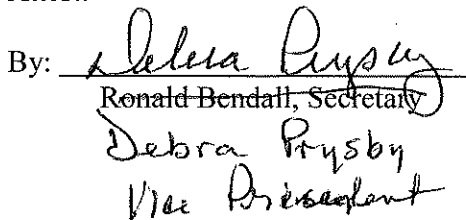 By: Debra Prysby
Ronald Bendall, Secretary
Debra Prysby
Vice President